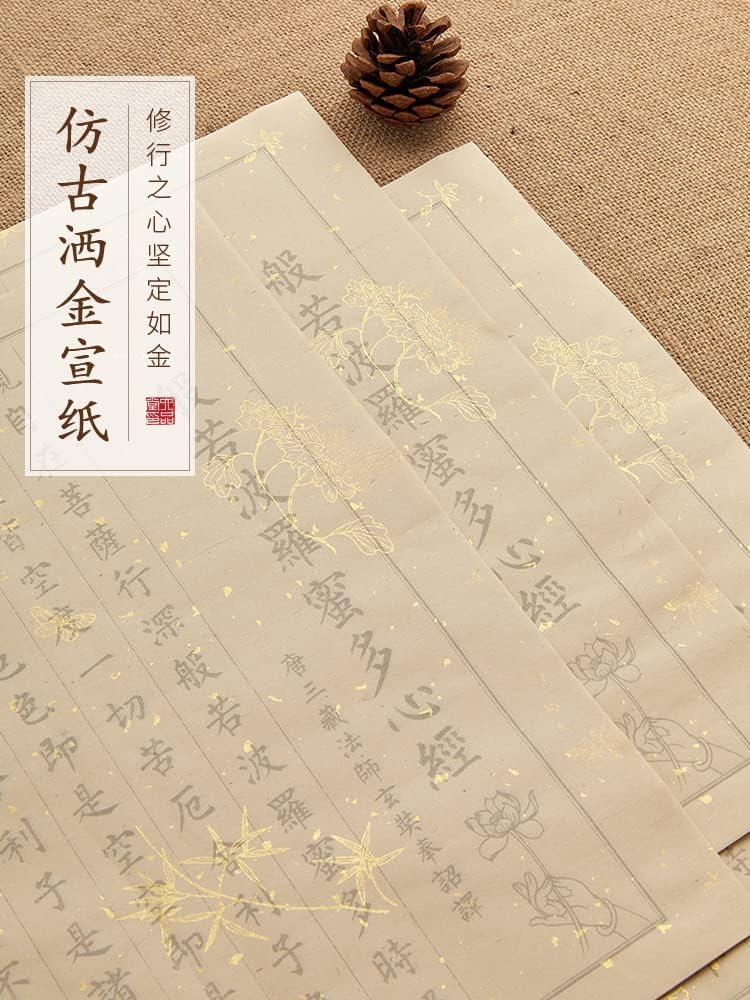 仿古洒金宣纸
修行之心坚定如金
般若波羅蜜多心經
般若波羅蜜多心經
唐三藏法師玄奘奉詔譯
自在菩薩行深般若波羅蜜多時
皆空度一切苦厄舍利子
色色即是空空即
利子是諸
不